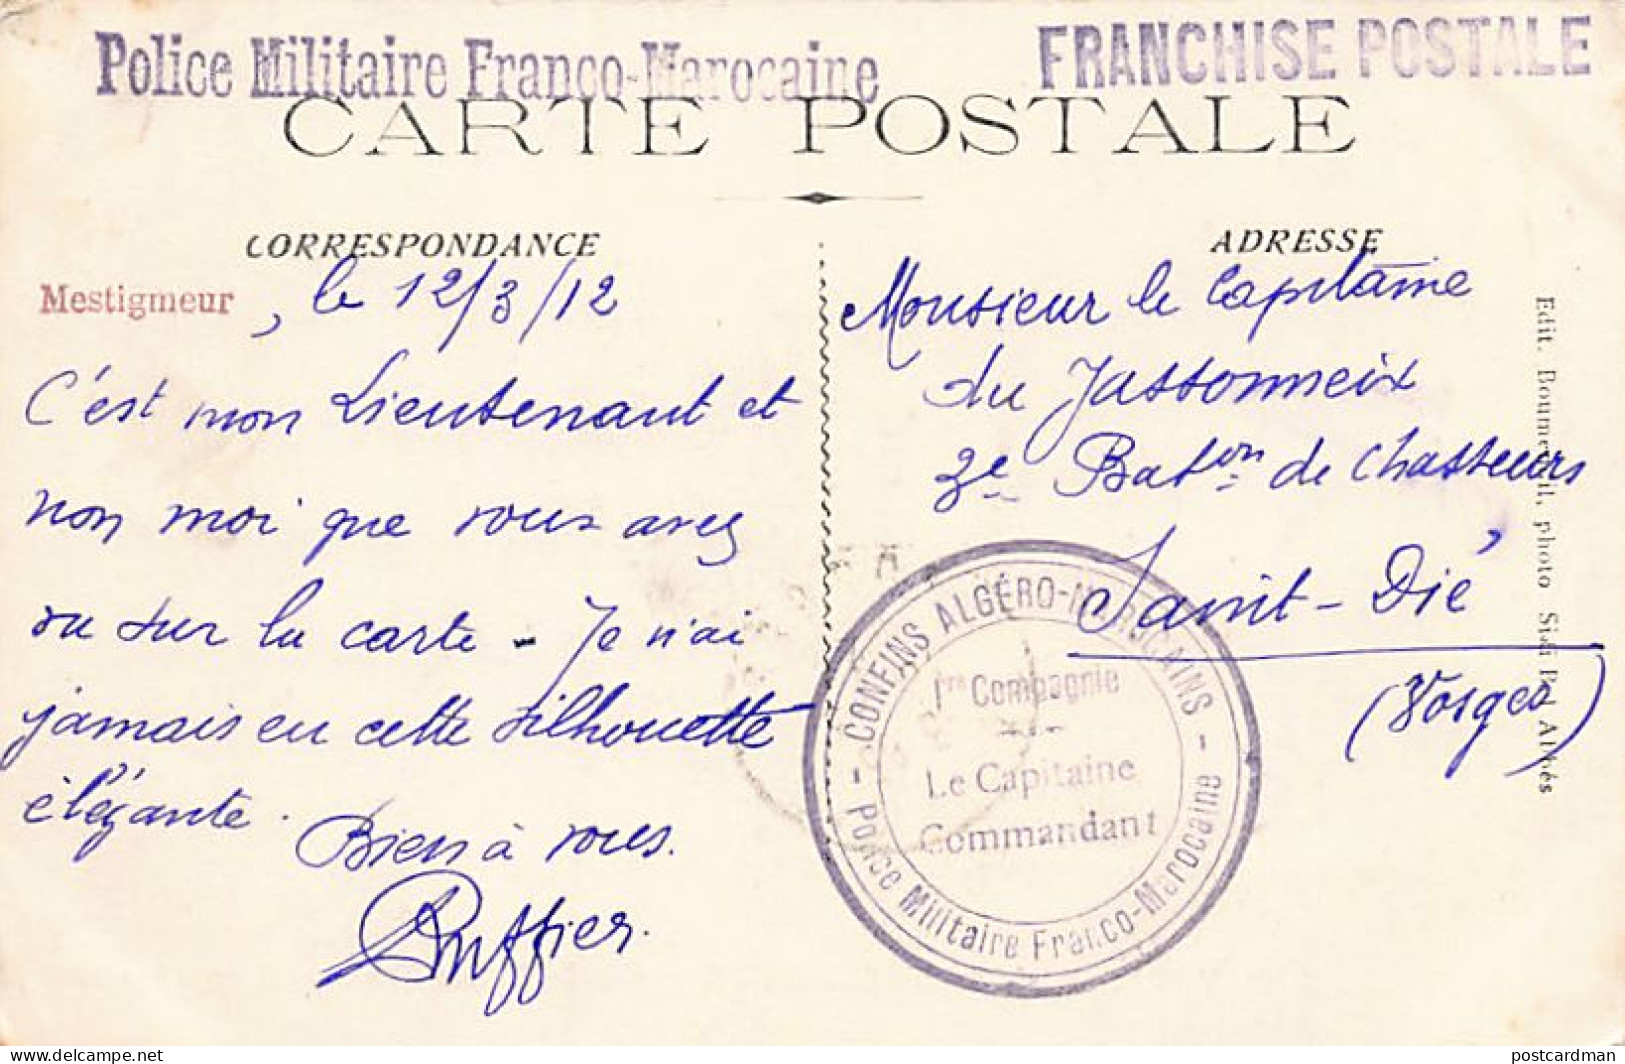 Police Militaire Franco-Marocaine
FRANCHISE POSTALE
CARTE POSTALE
CORRESPONDANCE
Mestigmeur, le 12/3/12
C'est mon Lieutenant et
non moi que vous avez
vu sur la carte - Je n'ai
jamais eu cette silhouette
élégante.
Bien à vous.
ADRESSE
Monsieur le Capitaine
du Jassonneix
3e Bat.on de Chasseurs
Saint-Dié
(Vosges)
- CONFINS ALGÉRO-MAROCAINS -
1re Compagnie
Le Capitaine
Commandant
Police Militaire Franco-Marocaine
Edit. photo Sidi Bel Abbès
delcampe.net
postcardman